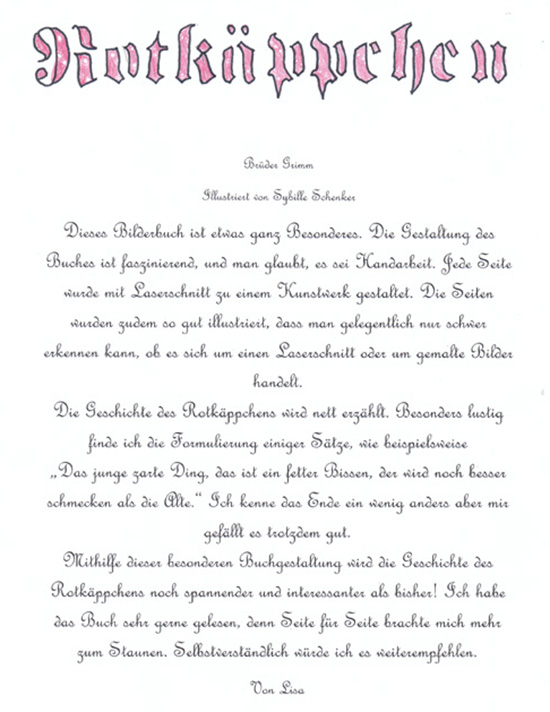 Rotkäppchen
Brüder Grimm
Illustriert von Sybille Schenker
Dieses Bilderbuch ist etwas ganz Besonderes. Die Gestaltung des
Buches ist faszinierend, und man glaubt, es sei Handarbeit. Jede Seite
wurde mit Laserschnitt zu einem Kunstwerk gestaltet. Die Seiten
wurden zudem so gut illustriert, dass man gelegentlich nur schwer
erkennen kann, ob es sich um einen Laserschnitt oder um gemalte Bilder
handelt.
Die Geschichte des Rotkäppchens wird nett erzählt. Besonders lustig
finde ich die Formulierung einiger Sätze, wie beispielsweise
„Das junge zarte Ding, das ist ein fetter Bissen, der wird noch besser
schmecken als die Alte.“ Ich kenne das Ende ein wenig anders aber mir
gefällt es trotzdem gut.
Mithilfe dieser besonderen Buchgestaltung wird die Geschichte des
Rotkäppchens noch spannender und interessanter als bisher! Ich habe
das Buch sehr gerne gelesen, denn Seite für Seite brachte mich mehr
zum Staunen. Selbstverständlich würde ich es weiterempfehlen.
Von Lisa